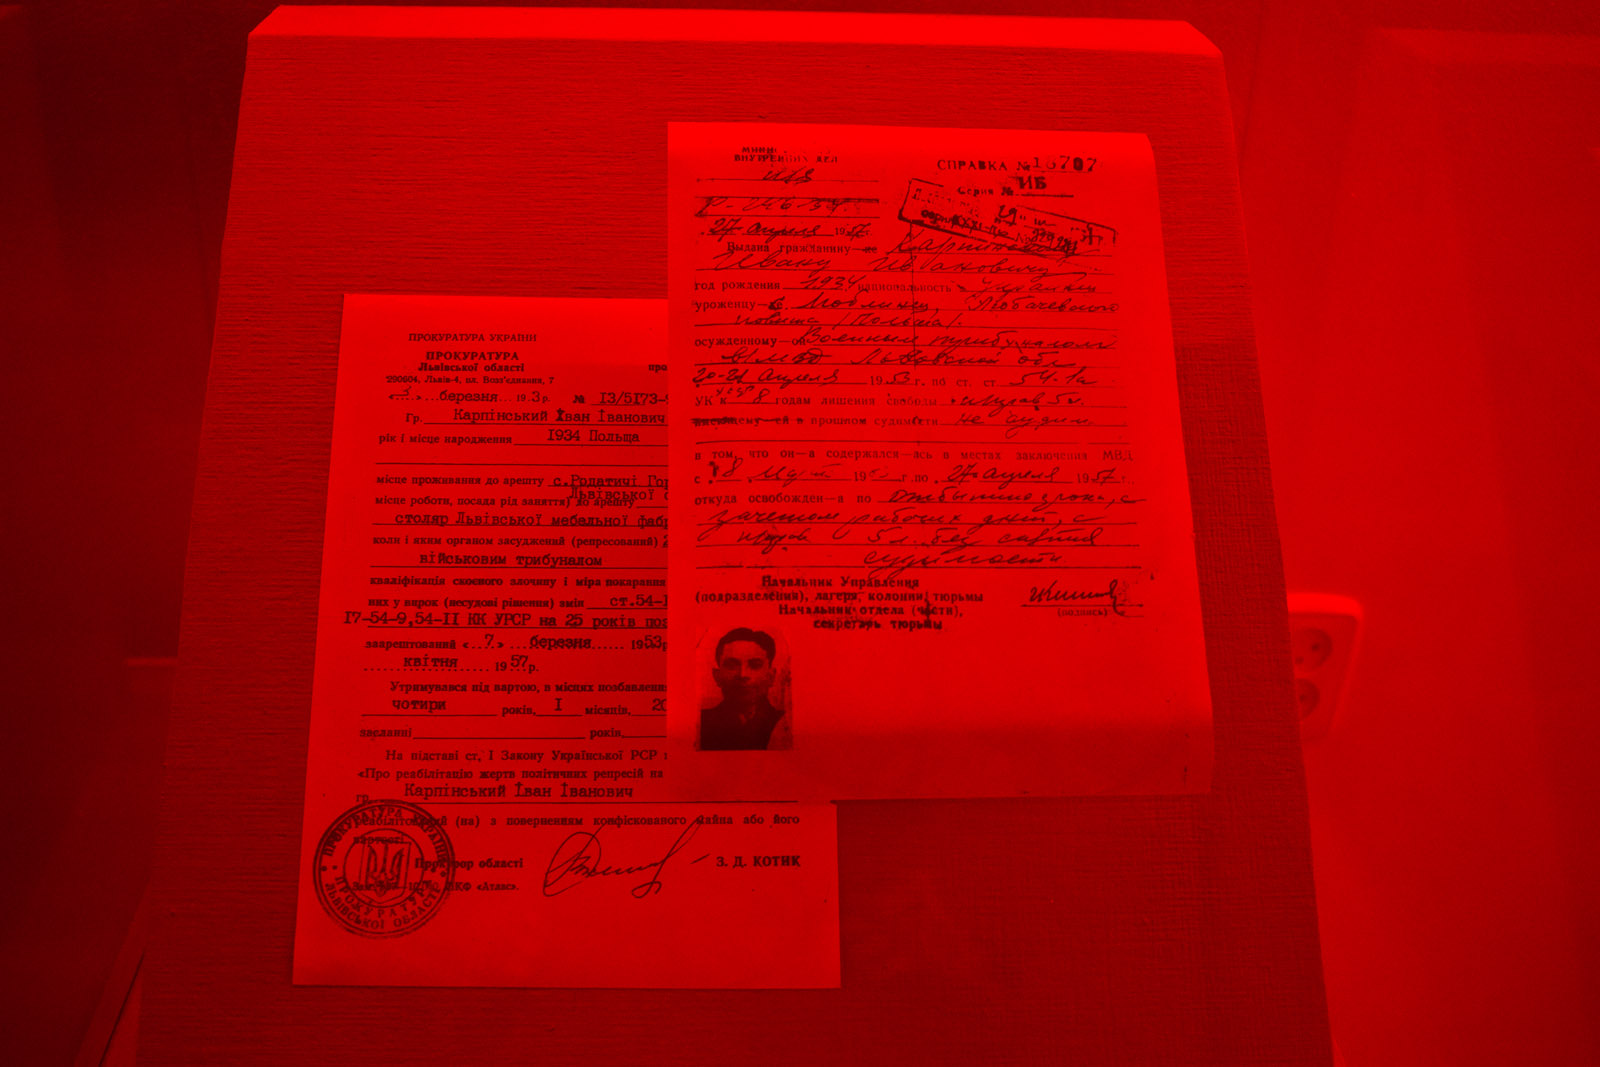 ПРОКУРАТУРА УКРАЇНИ
ПРОКУРАТУРА
Львівської області
290604, Львів-4, пл. Возз'єднання, 7
« 3 » березня 193 р. № 13/5173-9
Гр. Карпінський Іван Іванович
рік і місце народження 1934 Польща
місце проживання до арешту с.Родатичі Гор
Львівської о
місце роботи, посада рід заняття) до арешту
столяр Львівської мебельної фабр
коли і яким органом засуджений (репресований) 2
військовим трибуналом
кваліфікація скоєного злочину і міра покарання
них у вирок (несудові рішення) змін ст.54-1
17-54-9,54-11 КК УРСР на 25 років поз
заарештований « 7 » березня 1953р
квітня 1957р.
Утримувався під вартою, в місцях позбавлення
чотири років, 1 місяців, 20
засланні років,
На підставі ст. 1 Закону Української РСР
«Про реабілітацію жертв політичних репресій на
гр. Карпінський Іван Іванович
реабілітований (на) з поверненням конфіскованого майна або його
вартості
Прокурор області З. Д. КОТИК
ВКФ «Атлас».
ПРОКУРАТУРА УКРАЇНИ
ПРОКУРАТУРА
ЛЬВІВСЬКОЇ ОБЛАСТІ
ВНУТРЕННИХ ДЕЛ
27 апреля 1957г.
СПРАВКА № 
Серия № ИБ
Выдана гражданину—ке Карпинскому
Ивану Ивановичу
год рождения 1934 национальность украинец
уроженцу—ке с. Любачевского
повита /Польша/.
осужденному—ой Военным трибуналом
Львовской обл
20-21 апреля 1953 г. по ст. ст. 54-1а
УК к 8 годам лишения свободы
имеющему—ей в прошлом судимости не судим
в том, что он—а содержался—ась в местах заключения МВД
с 8 19 г. по 27 апреля 1957г.
откуда освобожден—а по отбытию срока, с
зачетом рабочих дней, с
5 л. без снятия
судимости.
Начальник Управления
(подразделения), лагеря, колонии, тюрьмы
Начальник отдела (части),
секретарь тюрьмы
(подпись)